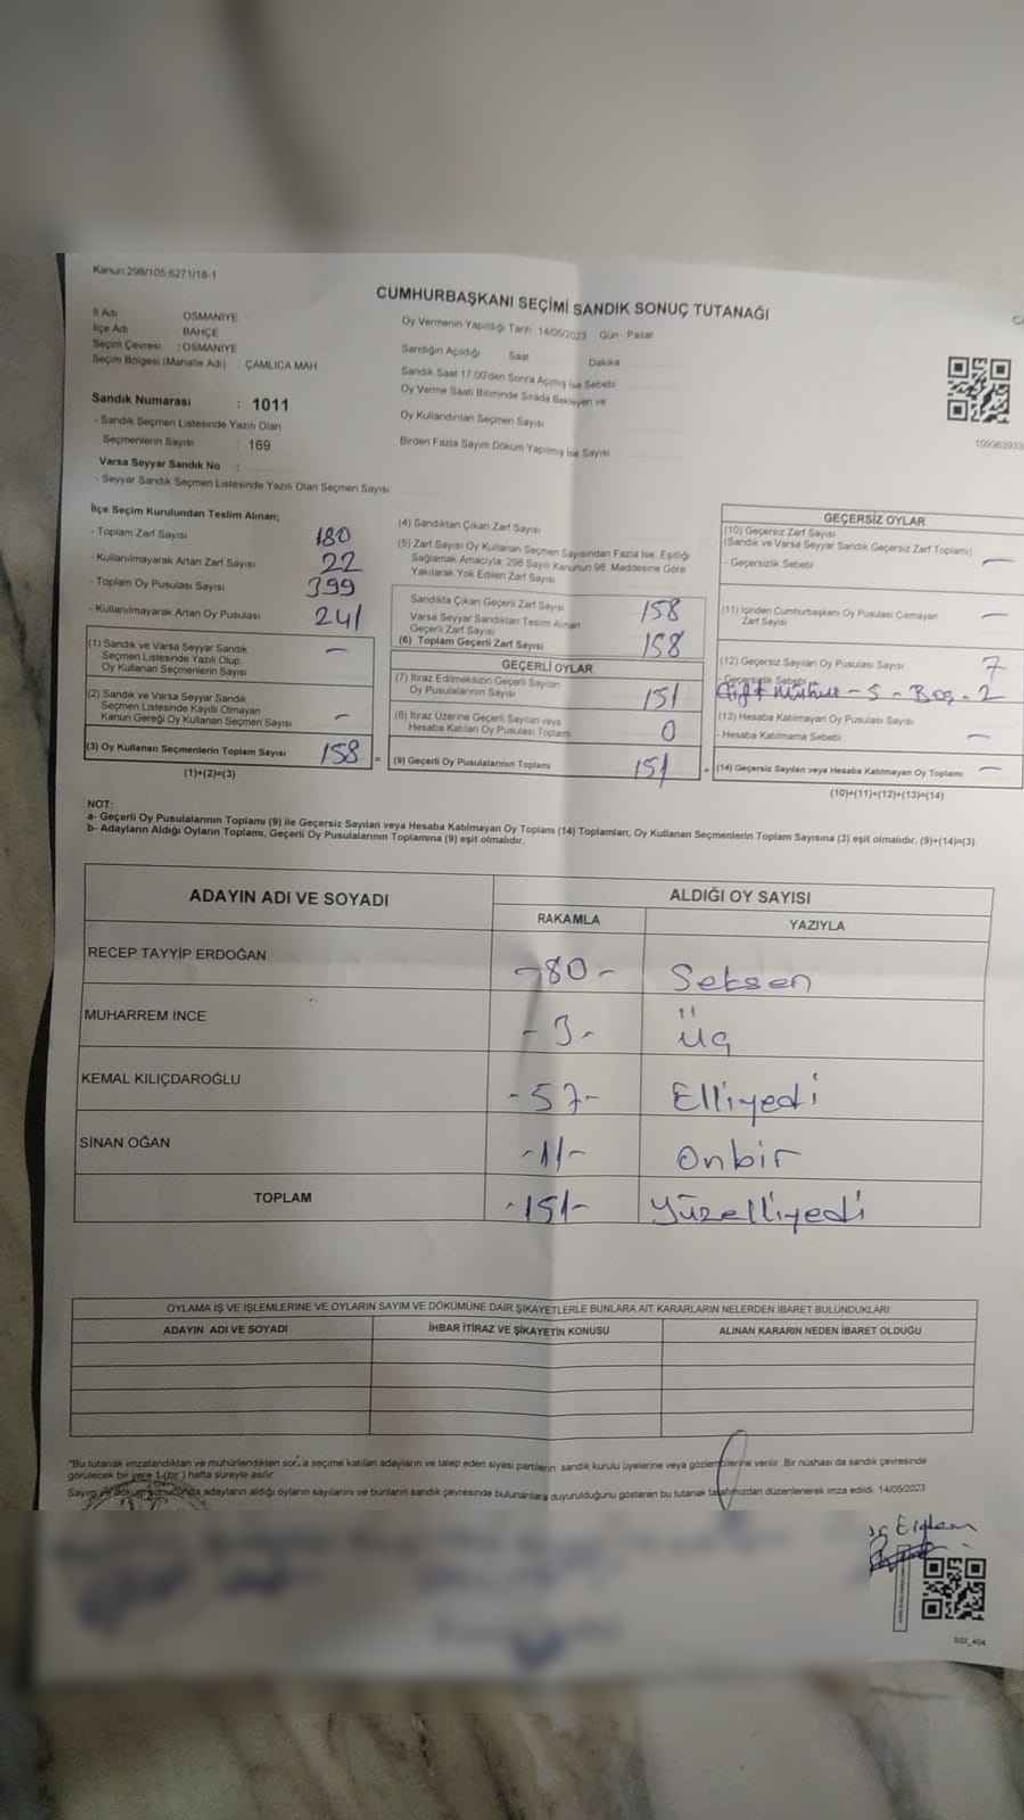 Kanun:298/105:6271/18-1
CUMHURBAŞKANI SEÇİMİ SANDIK SONUÇ TUTANAĞI
İl Adı OSMANİYE
İlçe Adı BAHÇE
Seçim Çevresi : OSMANİYE
Seçim Bölgesi (Mahalle Adı) : ÇAMLICA MAH
Sandık Numarası : 1011
- Sandık Seçmen Listesinde Yazılı Olan
Seçmenlerin Sayısı : 169
Varsa Seyyar Sandık No :
- Seyyar Sandık Seçmen Listesinde Yazılı Olan Seçmen Sayısı
Oy Vermenin Yapıldığı Tarih: 14/05/2023 Gün: Pazar
Sandığın Açıldığı Saat Dakika
Sandık Saat 17.00'den Sonra Açılmış ise Sebebi
Oy Verme Saati Bitiminde Sırada Bekleyen ve
Oy Kullandırılan Seçmen Sayısı
Birden Fazla Sayım Döküm Yapılmış ise Sayısı
İlçe Seçim Kurulundan Teslim Alınan;
- Toplam Zarf Sayısı 180
- Kullanılmayarak Artan Zarf Sayısı 22
- Toplam Oy Pusulası Sayısı 399
- Kullanılmayarak Artan Oy Pusulası 241
(1) Sandık ve Varsa Seyyar Sandık
Seçmen Listesinde Yazılı Olup
Oy Kullanan Seçmenlerin Sayısı -
(2) Sandık ve Varsa Seyyar Sandık
Seçmen Listesinde Kayıtlı Olmayan
Kanun Gereği Oy Kullanan Seçmen Sayısı -
(3) Oy Kullanan Seçmenlerin Toplam Sayısı 158 =
(1)+(2)=(3)
(4) Sandıktan Çıkan Zarf Sayısı
(5) Zarf Sayısı Oy Kullanan Seçmen Sayısından Fazla ise, Eşitliği
Sağlamak Amacıyla; 298 Sayılı Kanunun 98. Maddesine Göre
Yakılarak Yok Edilen Zarf Sayısı
Sandıkta Çıkan Geçerli Zarf Sayısı 158
Varsa Seyyar Sandıktan Teslim Alınan
Geçerli Zarf Sayısı
(6) Toplam Geçerli Zarf Sayısı 158
GEÇERLİ OYLAR
(7) İtiraz Edilmeksizin Geçerli Sayılan
Oy Pusulalarının Sayısı 151
(8) İtiraz Üzerine Geçerli Sayılan veya
Hesaba Katılan Oy Pusulası Toplamı 0
(9) Geçerli Oy Pusulalarının Toplamı 151
GEÇERSİZ OYLAR
(10) Geçersiz Zarf Sayısı
(Sandık ve Varsa Seyyar Sandık Geçersiz Zarf Toplamı)
- Geçersizlik Sebebi -
(11) İçinden Cumhurbaşkanı Oy Pusulası Çıkmayan
Zarf Sayısı -
(12) Geçersiz Sayılan Oy Pusulası Sayısı 7
- Geçersizlik Sebebi
Çift Mühür - 5 - Boş - 2
(13) Hesaba Katılmayan Oy Pusulası Sayısı
- Hesaba Katılmama Sebebi -
+ (14) Geçersiz Sayılan veya Hesaba Katılmayan Oy Toplamı -
(10)+(11)+(12)+(13)=(14)
NOT:
a- Geçerli Oy Pusulalarının Toplamı (9) ile Geçersiz Sayılan veya Hesaba Katılmayan Oy Toplamı (14) Toplamları, Oy Kullanan Seçmenlerin Toplam Sayısına (3) eşit olmalıdır. (9)+(14)=(3)
b- Adayların Aldığı Oyların Toplamı, Geçerli Oy Pusulalarının Toplamına (9) eşit olmalıdır.
ADAYIN ADI VE SOYADI ALDIĞI OY SAYISI
RAKAMLA YAZIYLA
RECEP TAYYİP ERDOĞAN -80- Seksen
MUHARREM İNCE -3- Üç
KEMAL KILIÇDAROĞLU -57- Elliyedi
SİNAN OĞAN -11- Onbir
TOPLAM -151- Yüzelliyedi
OYLAMA İŞ VE İŞLEMLERİNE VE OYLARIN SAYIM VE DÖKÜMÜNE DAİR ŞİKAYETLERLE BUNLARA AİT KARARLARIN NELERDEN İBARET BULUNDUKLARI
ADAYIN ADI VE SOYADI İHBAR İTİRAZ VE ŞİKAYETİN KONUSU ALINAN KARARIN NEDEN İBARET OLDUĞU
"Bu tutanak imzalandıktan ve mühürlendikten sonra seçime katılan adayların ve talep eden siyasi partilerin sandık kurulu üyelerine veya gözlemcilerine verilir. Bir nüshası da sandık çevresinde
görülecek bir yere 1 (bir) hafta süreyle asılır.
Sayım ve döküm sonucunda adayların aldığı oyların sayılarını ve bunların sandık çevresinde bulunanlara duyurulduğunu gösteren bu tutanak tarafımızdan düzenlenerek imza edildi. 14/05/2023